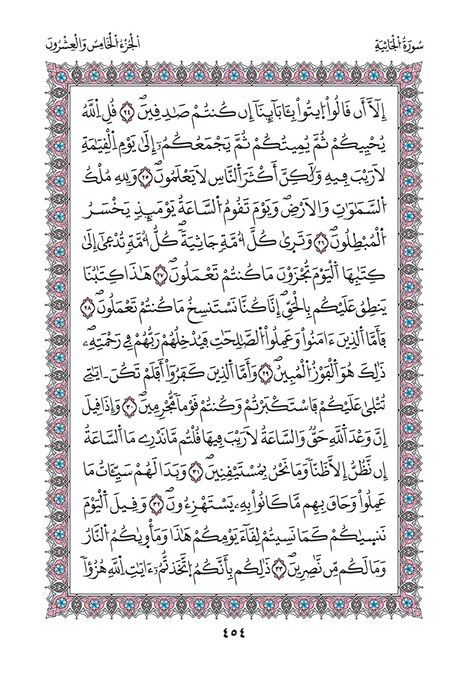 سُورَةُ الْجَاثِيَةِ
الْجُزْءُ الْخَامِسُ وَالْعِشْرُونَ
إِلَّآ أَن قَالُواْ ايتُواْ بِـَٔابَآئِنَآ إِن كُنتُمْ صَٰدِقِينَۖ ٢٤ قُلِ اِ۬للَّهُ
يُحْيِيكُمْ ثُمَّ يُمِيتُكُمْ ثُمَّ يَجْمَعُكُمُۥٓ إِلَىٰ يَوْمِ اِ۬لْقِيَٰمَةِ
لَا رَيْبَ فِيهِ وَلَٰكِنَّ أَكْثَرَ اَ۬لنَّاسِ لَا يَعْلَمُونَۖ ٢٥ وَلِلهِ مُلْكُ
اُ۬لسَّمَٰوَٰتِ وَالَارْضِۖ وَيَوْمَ تَقُومُ اُ۬لسَّاعَةُ يَوْمَئِذٖ يَخْسَرُ
اُ۬لْمُبْطِلُونَۖ ٢٦ وَتَرَىٰ كُلَّ أُمَّةٖ جَاثِيَةٗۖ كُلُّ أُمَّةٖ تُدْعَىٰٓ إِلَىٰ
كِتَٰبِهَا اَ۬لْيَوْمَ تُجْزَوْنَ مَا كُنتُمْ تَعْمَلُونَۖ ٢٧ هَٰذَا كِتَٰبُنَا
يَنطِقُ عَلَيْكُم بِالْحَقِّۖ إِنَّا كُنَّا نَسْتَنسِخُ مَا كُنتُمْ تَعْمَلُونَۖ ٢٨
فَأَمَّا اَ۬لذِينَ ءَامَنُواْ وَعَمِلُواْ اُ۬لصَّٰلِحَٰتِ فَيُدْخِلُهُمْ رَبُّهُمْ فِے رَحْمَتِهِۦۖ
ذَٰلِكَ هُوَ اَ۬لْفَوْزُ اُ۬لْمُبِينُۖ ٢٩ وَأَمَّا اَ۬لذِينَ كَفَرُوٓاْ أَفَلَمْ تَكُنَ اٰيَٰتِے
تُتْلَىٰ عَلَيْكُمْ فَاسْتَكْبَرْتُمْ وَكُنتُمْ قَوْماٗ مُّجْرِمِينَۖ ٣٠ وَإِذَا قِيلَ
إِنَّ وَعْدَ اَ۬للَّهِ حَقّٞ وَالسَّاعَةُ لَا رَيْبَ فِيهَا قُلْتُم مَّا نَدْرِے مَا اَ۬لسَّاعَةُ
إِن نَّظُنُّ إِلَّا ظَنّاٗ وَمَا نَحْنُ بِمُسْتَيْقِنِينَۖ ٣١ وَبَدَا لَهُمْ سَيِّـَٔاتُ مَا
عَمِلُواْ وَحَاقَ بِهِم مَّا كَانُواْ بِهِۦ يَسْتَهْزِءُونَۖ ٣٢ وَقِيلَ اَ۬لْيَوْمَ
نَنسَىٰكُمْ كَمَا نَسِيتُمْ لِقَآءَ يَوْمِكُمْ هَٰذَا وَمَأْوَىٰكُمُ اُ۬لنَّارُ
وَمَا لَكُم مِّن نَّٰصِرِينَۖ ٣٣ ذَٰلِكُم بِأَنَّكُمُ اُ۪تَّخَذتُّمُۥٓ ءَايَٰتِ اِ۬للَّهِ هُزُؤاٗ
٤٥٤